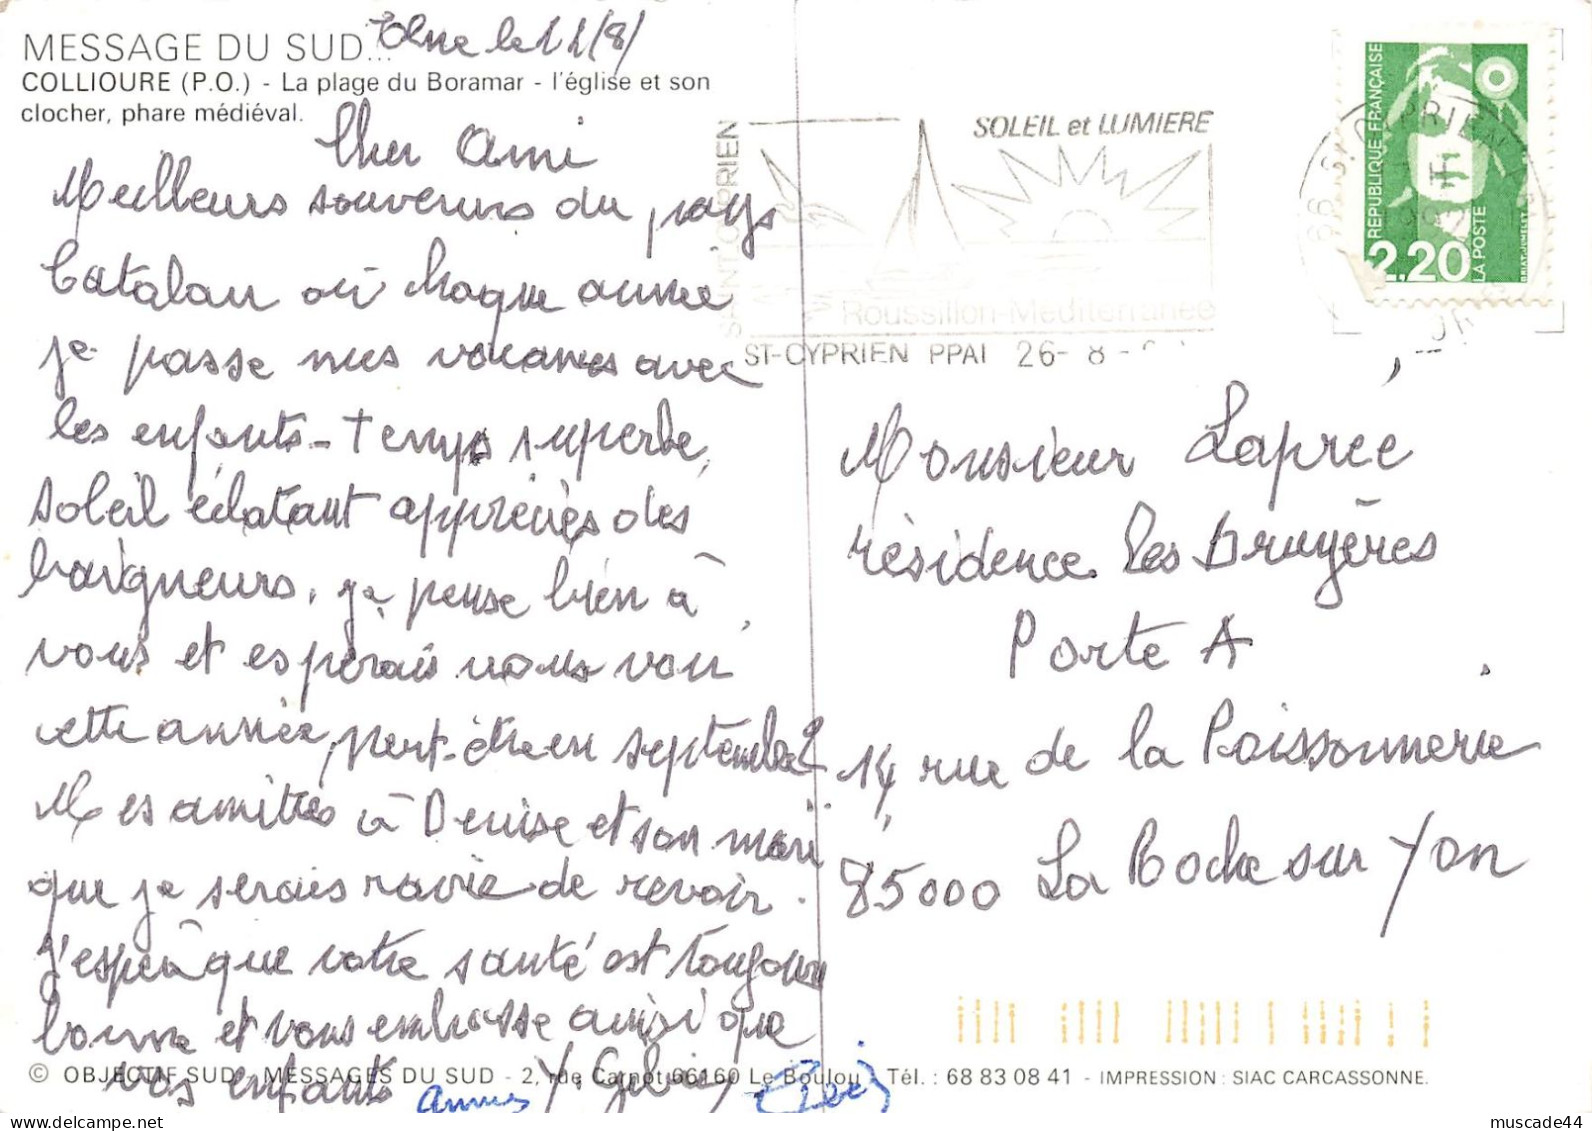 MESSAGE DU SUD...
le 22/8/
COLLIOURE (P.O.) - La plage du Boramar - l'église et son
clocher, phare médiéval.
Cher Ami
Meilleurs souvenirs du pays
Catalan où chaque année
je passe mes vacances avec
les enfants - Temps superbe,
soleil éclatant appréciés des
baigneurs. je pense bien à
vous et espérais vous voir
cette année, peut-être en septembre?
Mes amitiés à Denise et son mari
que je serais ravie de revoir.
J'espère que votre santé est toujours
bonne et vous embrasse ainsi que
vos enfants
© OBJECTIF SUD - MESSAGES DU SUD - 2, rue Carnot 66160 Le Boulou - Tél. : 68 83 08 41 - IMPRESSION : SIAC CARCASSONNE.
SAINT-CYPRIEN
SOLEIL et LUMIERE
Roussillon-Méditerranée
ST-CYPRIEN PPAL 26- 8 -
66 ST CYPRIEN
REPUBLIQUE FRANÇAISE
2,20
LA POSTE
BRIAT-JUMELET
Monsieur Laprée
résidence Les Bruyères
Porte A
14, rue de la Poissonnerie
85000 La Roche sur Yon
muscade44